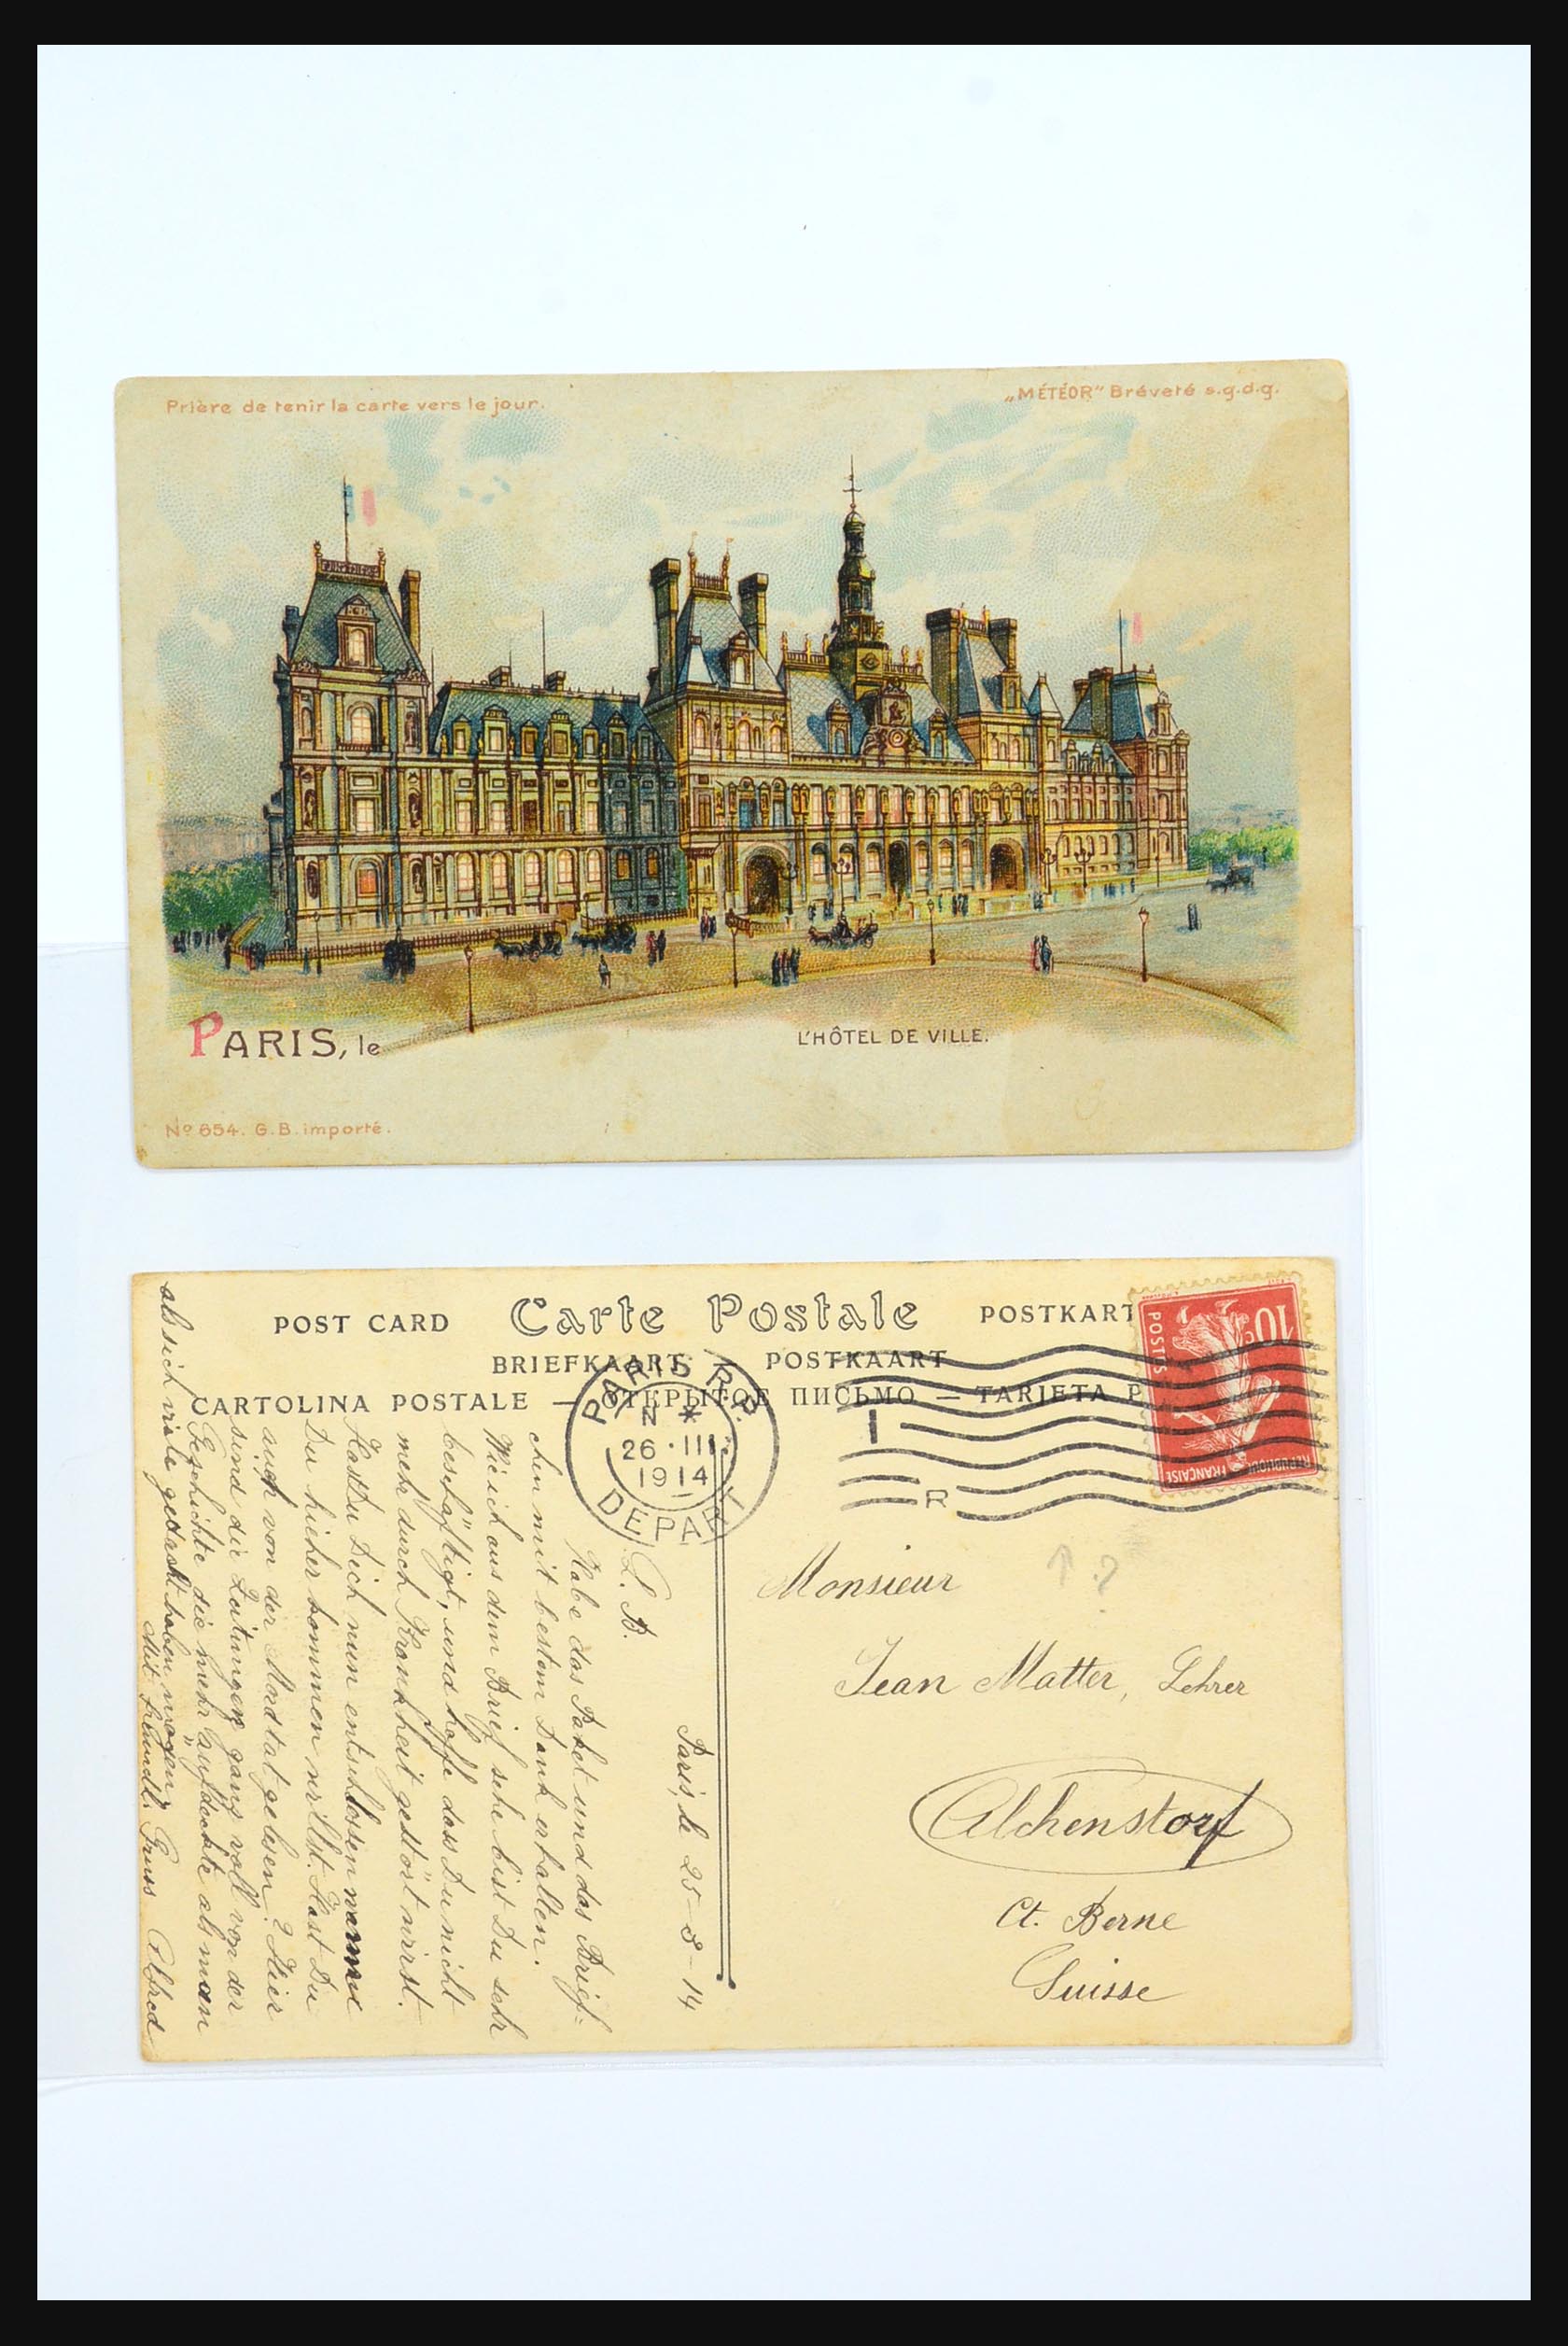 Prière de tenir la carte vers le jour.
„MÉTÉOR" Bréveté s.g.d.g.
PARIS, le
L'HÔTEL DE VILLE.
Nº 654. G.B. importé.
POST CARD Carte Postale POSTKART
BRIEFKAART — POSTKAART
CARTOLINA POSTALE — ОТКРЫТОЕ ПИСЬМО — TARJETA P
PARIS R.P.
N *
26 · III
1914
DEPART
R
10c
POSTES
REPUBLIQUE FRANÇAISE
Monsieur
Jean Matter, Lehrer
Alchenstorf
Ct. Berne
Suisse
Paris, le 25-3-14
L. B.
Habe das Paket und das Brief-
chen mit bestem Dank erhalten.
Wie ich aus dem Brief sehe bist Du sehr
beschäftigt, und hoffe dass Du nicht
mehr durch Krankheit gestört wirst.
Hast Du Dich nun entschlossen wann
Du hieher kommen willst. Hast Du
auch von der Mordtat gelesen? Hier
sind die Zeitungen ganz voll von der
Geschichte die mehr aufdeckte als man
als sich viele gedacht haben mögen
Mit freundl. Gruss Alfred